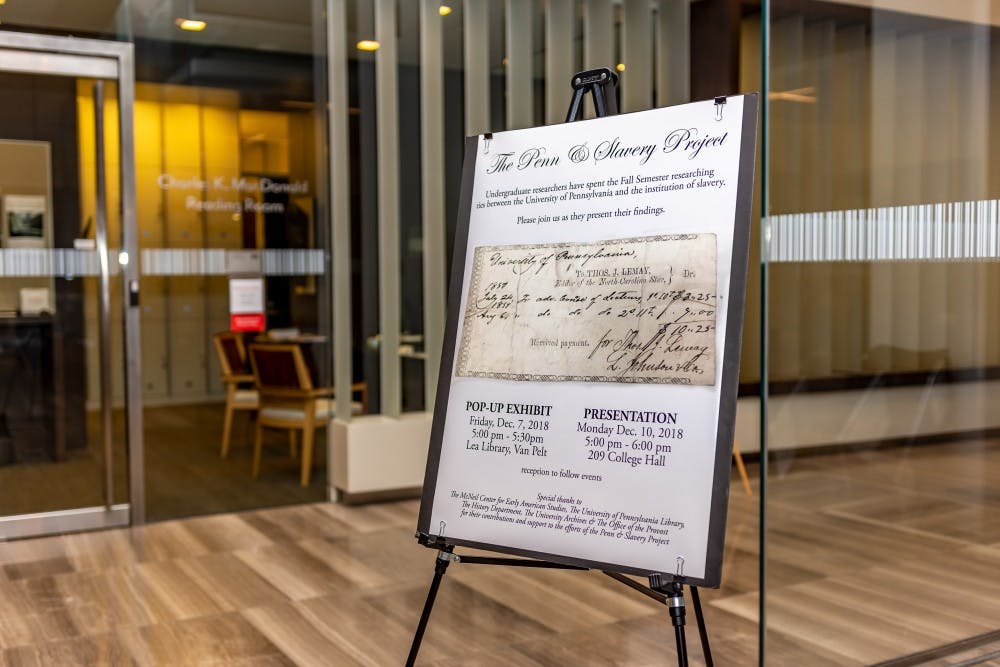 Charles K. MacDonald
Reading Room
The Penn & Slavery Project
Undergraduate researchers have spent the Fall Semester researching
ties between the University of Pennsylvania and the institution of slavery.
Please join us as they present their findings.
University of Pennsylvania,
To THOS. J. LEMAY, Dr.
Editor of the North-Carolina Star,
1850
July 24 To adv. Course of Lectures,
1851
do do
$10.25
Received payment, for Thos. J. Lemay
POP-UP EXHIBIT
Friday, Dec. 7, 2018
5:00 pm - 5:30pm
Lea Library, Van Pelt
PRESENTATION
Monday Dec. 10, 2018
5:00 pm - 6:00 pm
209 College Hall
reception to follow events
Special thanks to
The McNeil Center for Early American Studies, The University of Pennsylvania Library,
The History Department, The University Archives & The Office of the Provost
for their contributions and support to the efforts of the Penn & Slavery Project